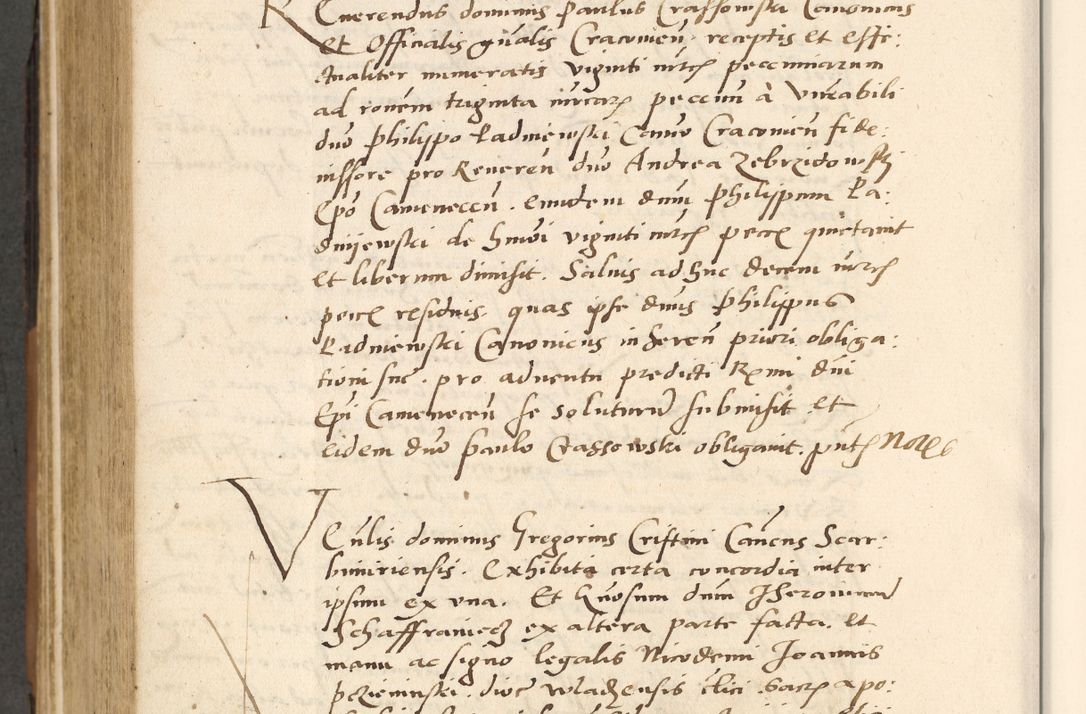 Reverendus dominus Paulus Crassowski Canonicus
et Officialis gnalis Cracovien. receptis et effe:
ctualiter numeratis viginti mrcs peccuniarum
ad ronem triginta mrcar peccun à venerabili
dno Philippo Padniewski Canco Cracovien fide:
iussore pro Reveren dno Andrea Zebrzidowski
Epo Camenecen. eundem dnm Philippum Pa:
dnijewski de hmoi viginti mrcs pecce quietavit
et liberum dimisit. Salvis adhuc decem mrcs
pecce residuis, quas ipse dnus Philippus
Padniewski Canonicus inheren priori obliga:
tioni sue. pro adventu predicti Rmi dni
Epi Camenecen se soluturum submisit et
eidem dno Paulo Crassowski obligavit. pntes Noles
Venlis dominus Gregorius Cristini Cancus Scar:
bimiriensis. Exhibita certa concordia inter
ipsum ex una. Et Gnosum dnm Iheronimum
Schaffraniecz ex altera parte facta. et
manu ac signo legalis Nicodemi Joannis
dioc Wladzensis clici. sacra apo: